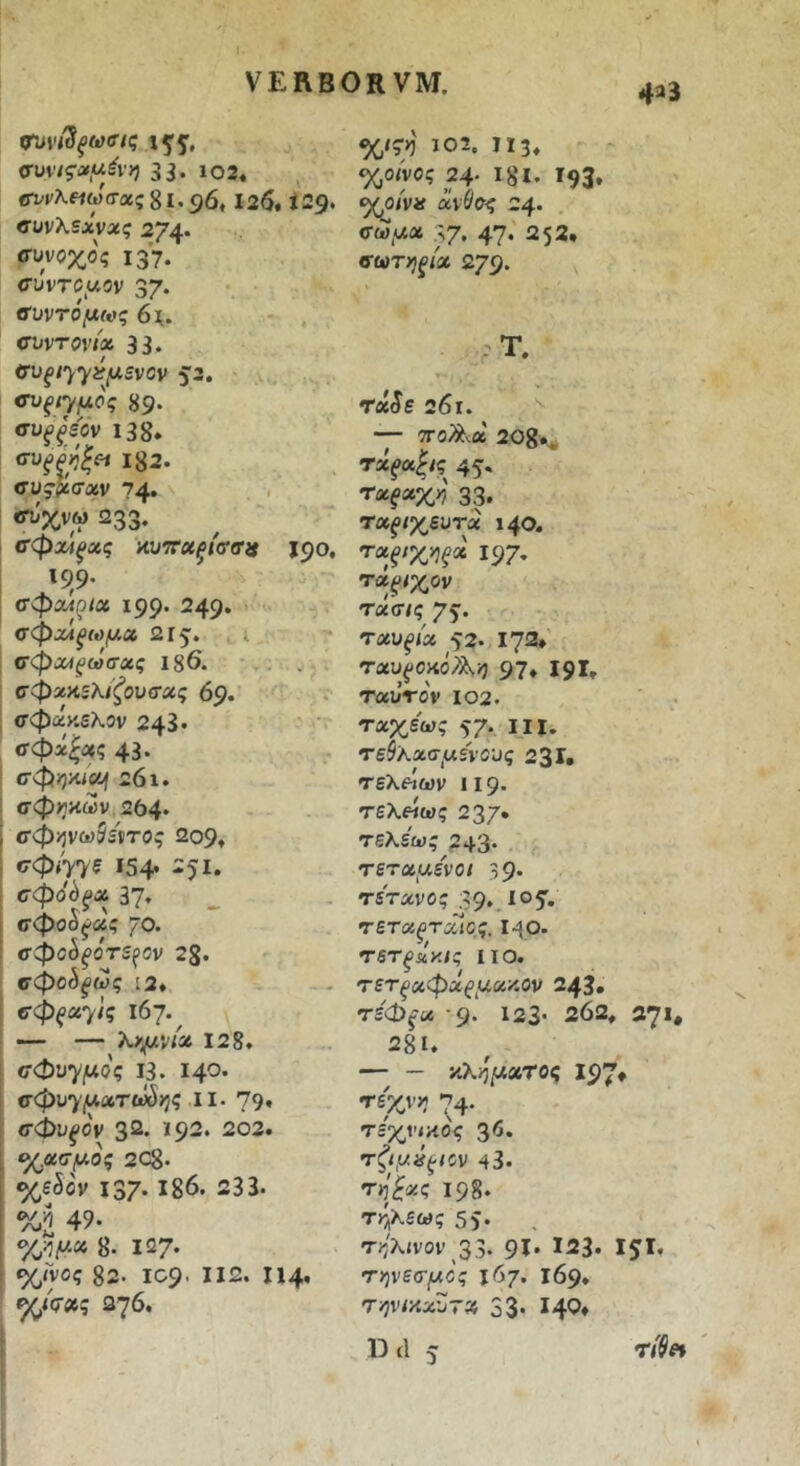 VERBORVM. 423
συνίδρωσις 155.
συνισαμένη 33. 102.
συνλειώσας 81. 96, 126, 129.
συνλεάνας 274.
συνοχὸς 137.
σύντομον 37.
συντόμως 61.
συντονία 33.
συριγγούμενον 52.
συριγμὸς 89.
συῤῥέον 138.
συῤῥήξει 182.
συστᾶσαν 74.
σύχνῳ 233.
σφαίρας κυπαρίσσου 190.
199.
σφαίρια 199. 249.
σφαίρωμα 215.
σφαιρώσας 186.
σφακελίζουσας 69.
σφάκελον 243.
σφάξας 43.
σφηκίαι 261.
σφηκῶν 264.
σφηνωθέντος 209.
σφίγγε 154. 251.
σφόδρα 37.
σφοδρὰς 70.
σφοδρότερον 28.
σφοδρῶς 12.
σφραγὶς 167.
— — λημνία 128.
σφυγμὸς 13. 140.
σφυγματώδης 11. 79.
σφυρὸν 32. 192. 202.
χασμὸς 208.
σχεδὸν 137. 186. 233.
σχῆ 49.
σχῆμα 8. 127.
σχῖνος 82. 109. 112. 114.
σχίσας 276.
σχιστὴ 102. 113.
σχοῖνος 24. 181. 193.
σχοίνου ἄνθος 24.
σῶμα 37. 47. 252.
σωτηρία 279.
T.
τάδε 261.
— πολλὰ 208.
τάραξις 45.
ταραχὴ 33.
ταριχευτὰ 140.
ταριχηρὰ 197.
τάριχον
τάσις 75.
ταυρία 52. 172.
ταυροκόλλη 97. 191.
ταὐτὸν 102.
ταχέως 57. 111.
τεθλασμένους 231.
τελείων 119.
τελείως 237.
τελέως 243.
τεταμένοι 39.
τέτανος 39. 105.
τεταρταῖος. 140.
τετράκις 110.
τετραφάρμακον 243.
τέφρα 9. 123. 262. 271.
281.
— — κλήματος 197.
τέχνη 74.
τέχνικὸς 36.
τζιμούριον 43.
τήξας 198.
τήλεως 55.
τήλινον 33. 91. 123. 151.
τηνεσμὸς 167. 169.
τηνικαῦτα 33. 140.
D d 5 τίθει